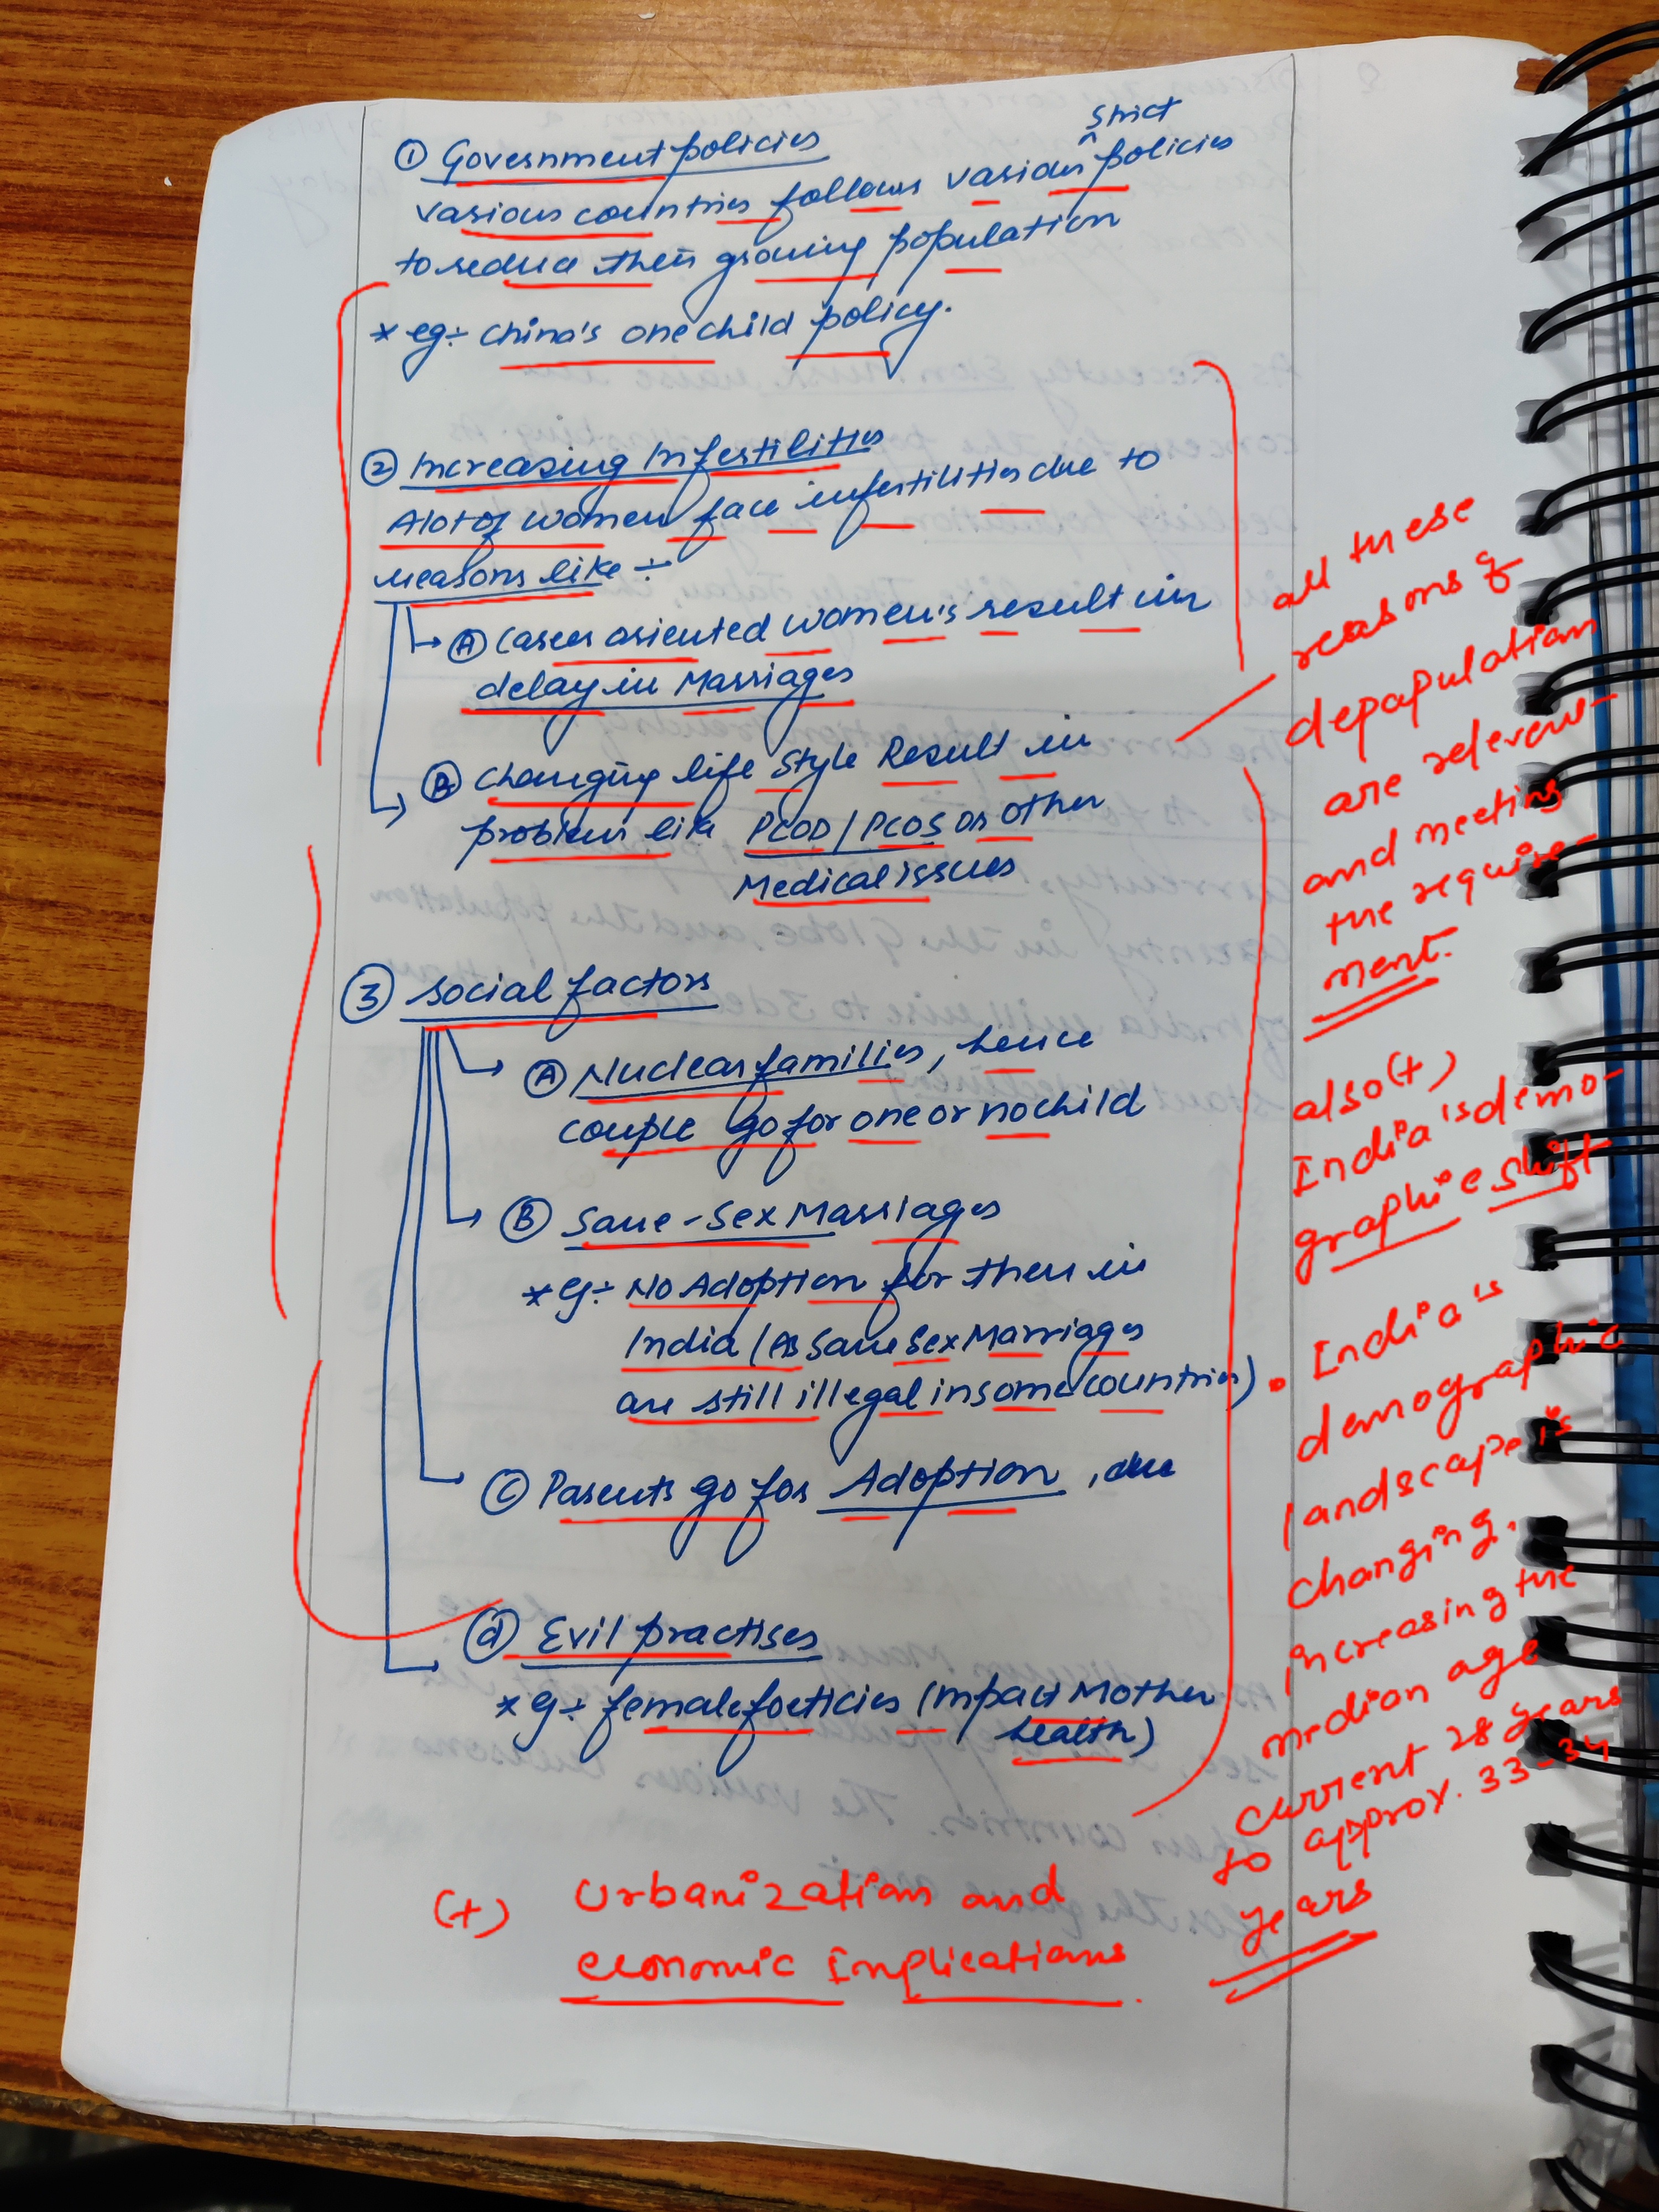 ① Government policies
various countries follows various strict policies
to reduce their growing population
* eg÷ China's one child policy.
② Increasing Infertilities
A lot of women face infertilities due to
reasons like ÷
Ⓐ Career oriented women's result in
delay in Marriages
Ⓑ Changing life style Result in
problem like PCOD / PCOS or other
Medical issues
③ Social factors
Ⓐ Nuclear families, hence
couple go for one or no child
Ⓑ Same-Sex Marriages
* eg÷ No Adoption for them in
India (As Same Sex Marriages
are still illegal in some countries)
Ⓒ Parents go for Adoption, due
ⓓ Evil practises
* eg÷ female foeticies (Impact Mother
health)
(+) Urbanization and
economic Implications.
all these
reasons of
depapulation
are relevent
and meeting
the require-
ment.
also (+)
India's demo-
graphic shift
• India's
demographic
landscape is
changing.
increasing the
median age
current 28 years
to approx. 33-34
years